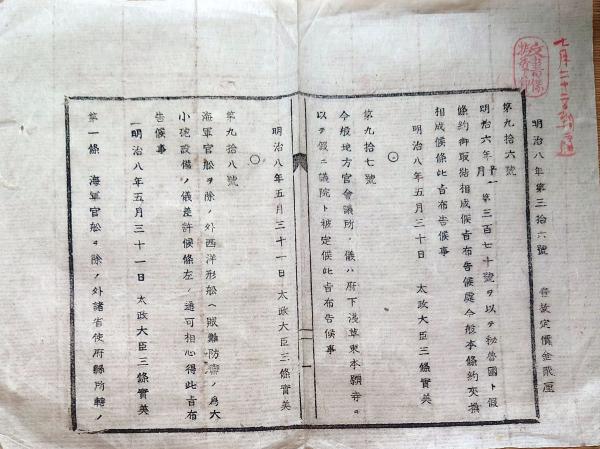 明治八年第三拾六號
壹枚定價金貮厘
第九拾六號
明治六年月第三百七十號ヲ以テ秘魯國ト假
條約御取結相成候旨布告候處今般本條約交換
相成候條此旨布告候事
明治八年五月三十日 太政大臣三條實美
第九拾七號
今般地方官會議所ノ儀ハ府下淺草東本願寺ヲ
以テ假ニ議院ト被定候此旨布告候事
明治八年五月三十一日 太政大臣三條實美
第九拾八號
海軍官舩ヲ除ノ外西洋形舩ヘ賊難防禦ノ爲大
小砲設備ノ儀差許候條左ノ通可相心得此旨布
告候事
明治八年五月三十一日 太政大臣三條實美
第一條 海軍官舩ヲ除ノ外諸省使府縣所轄ノ